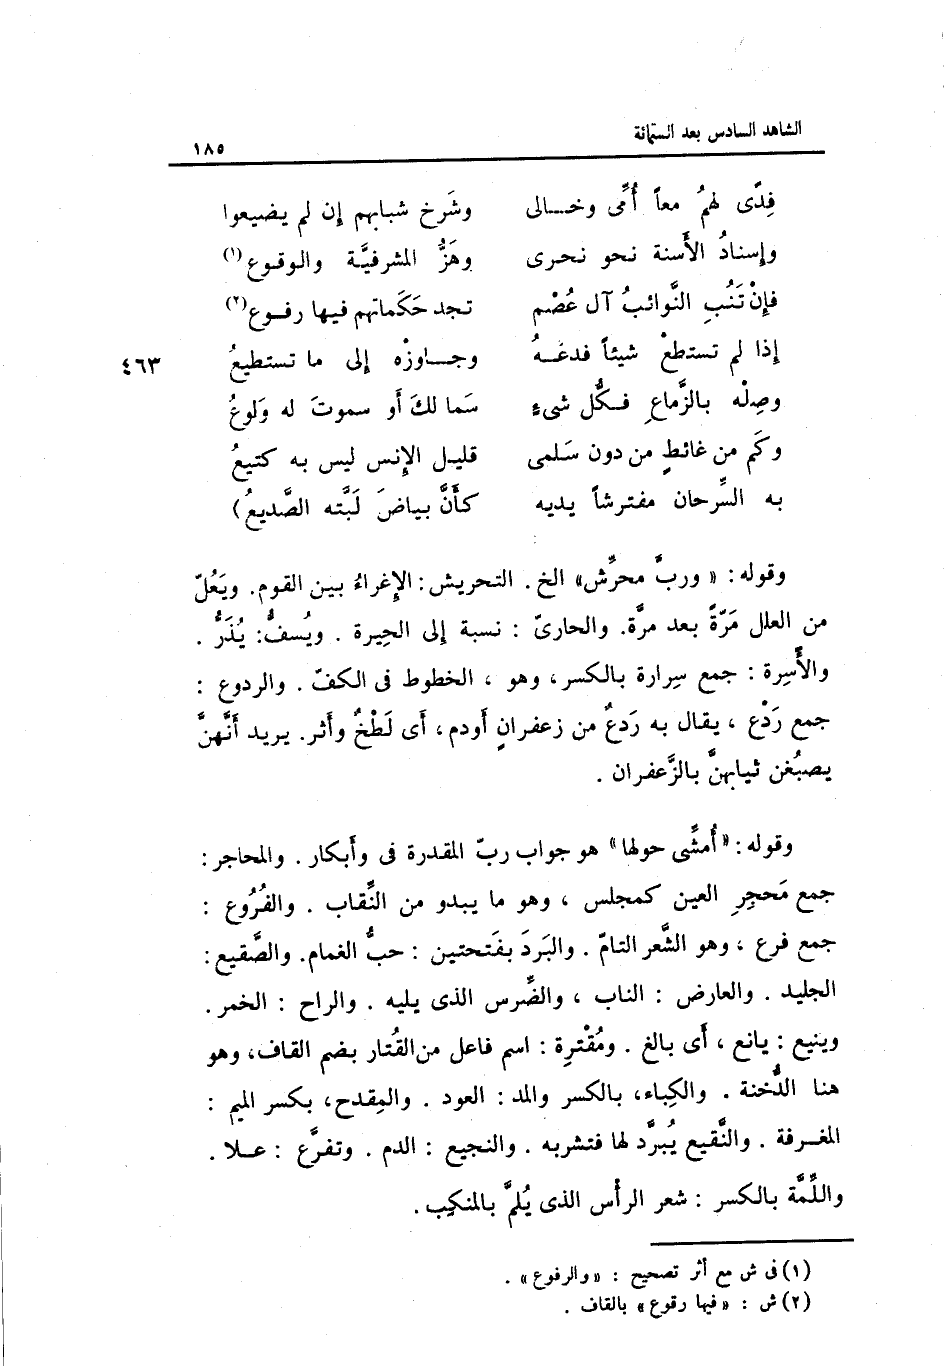 الشاهد السادس بعد الستمائة
١٨٥
فِدًى لهمُ معاً أُمِّى وخــالى وشَرخ شبابهم إن لم يضيعوا
وإسنادُ الأَسنة نحو نحرى وهَزُّ المشرفيَّة والوقـوع(١)
فإنْ تَنُبِ النَّوائبُ آل عُصْم تجد حَكَماتهم فيها رفــوع(٢)
إذا لم تستطعْ شيئاً فدعْــهُ وجــاوزْه إلى ما تستطيعُ
٤٦٣
وصِلْه بالزَّماعِ فـكُّل شىءٍ سَما لكَ أَو سموتَ له وَلوعُ
وكَم من غائطٍ من دون سَلمى قليل الإنس ليس به كتيعُ
به السِّرحان مفترشاً يديه كأَنَّ بياضَ لَبَّته الصَّديعُ)
وقوله : « وربَّ محرِّش» الخ . التحريش : الإغراءُ بين القوم . ويَعُلّ
من العلل مَرّةً بعد مرَّة. والحارىّ : نسبة إلى الحِيرة . ويُسفُّ: يُذَرُّ .
والأَسِرة : جمع سِرارة بالكسر، وهو ، الخطوط فى الكفّ . والردوع :
جمع رَدْع ، يقال به رَدعٌ من زعفرانٍ أَودم، أَى لَطْخٌ وأَثر. يريد أَنَّهنَّ
يصبُغن ثيابهنَّ بالزَّعفران .
وقوله : «أُمشِّى حولها» هو جواب ربّ المقدرة فى وأَبكار . والمحاجر :
جمع مَحجِرِ العين كمجلس ، وهو ما يبدو من النِّقاب . والفُرُوع :
جمع فرع ، وهو الشَّعر التامّ . والبَردَ بفَتحتين : حبُّ الغمام. والصَّقيع :
الجليد . والعارض : الناب ، والضِّرس الذى يليه . والراح : الخمر .
وينيع : يانع ، أَى بالغ . ومُقْترِة : اسم فاعل من القُتار بضم القاف، وهو
هنا الدُّخنة . والكِباء، بالكسر والمد : العود . والمِقدح، بكسر الميم :
المغـرفة . والنَّقيع يُبرَّد لها فتشربه . والنجيع : الدم . وتفرَّع : عــلا .
واللِّمَّة بالكسر : شعر الرأْس الذى يُلمَّ بالمنكِب .
(١) فى ش مع أثر تصحيح : «والرفوع» .
(٢) ش : «فيها رقوع» بالقاف .